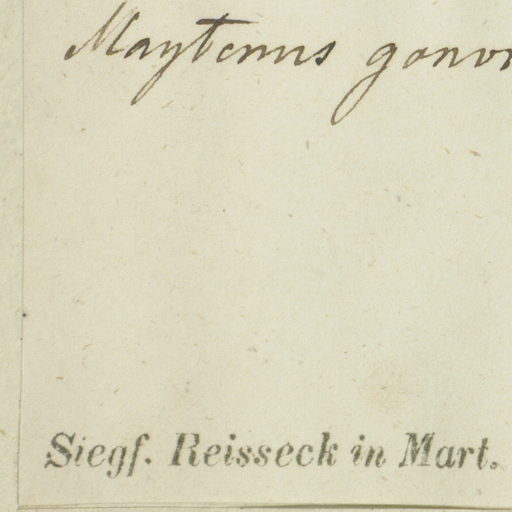 Maytenus gono
Siegf. Reisseck in Mart.